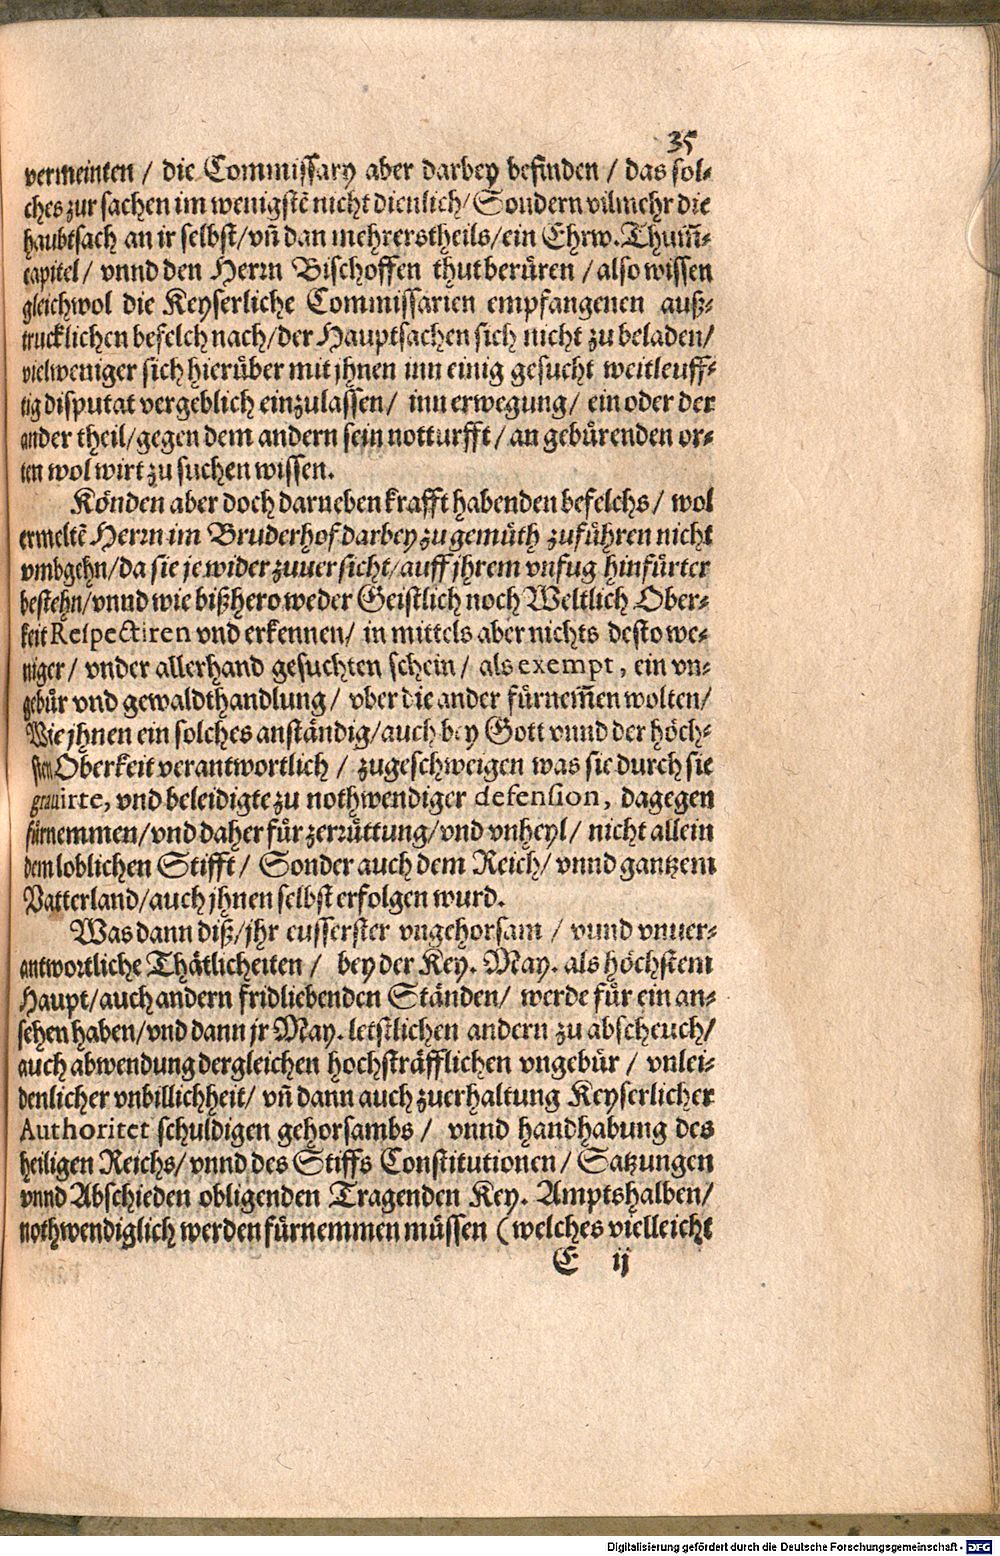 35
vermeinten / die Commissary aber darbey befinden / das sol-
ches zur sachen im wenigstẽ nicht dienlich / Sondern vilmehr die
haubtsach an ir selbst / vñ dan mehrerstheils / ein Ehrw. Thum̃-
capitel / vnnd den Herrn Bischoffen thut berüren / also wissen
gleichwol die Keyserliche Commissarien empfangenen auß-
trucklichen befelch nach / der Hauptsachen sich nicht zu beladen /
vielweniger sich hierüber mit jhnen inn einig gesucht weitleuff-
tig disputat vergeblich einzulassen / inn erwegung / ein oder der
ander theil / gegen dem andern sein notturfft / an gebürenden or-
ten wol wirt zu suchen wissen.
Könden aber doch darneben krafft habenden befelchs / wol
ermeltẽ Herrn im Bruderhof darbey zu gemüth zuführen nicht
vmbgehn / da sie je wider zuuersicht / auff jhrem vnfug hinfürter
bestehn / vnnd wie bißhero weder Geistlich noch Weltlich Ober-
keit Respectiren vnd erkennen / in mittels aber nichts desto we-
niger / vnder allerhand gesuchten schein / als exempt, ein vn-
gebür vnd gewaldthandlung / vber die ander fürnem̃en wolten /
Wie jhnen ein solches anständig / auch bey Gott vnnd der höch-
sten Oberkeit verantwortlich / zugeschweigen was sie durch sie
grauirte, vnd beleidigte zu nothwendiger defension, dagegen
fürnemmen / vnd daher für zerrüttung / vnd vnheyl / nicht allein
dem loblichen Stifft / Sonder auch dem Reich / vnnd gantzem
Vatterland / auch jhnen selbst erfolgen wurd.
Was dann diß / jhr eusserster vngehorsam / vnnd vnuer-
antwortliche Thätlicheiten / bey der Key. May. als höchstem
Haupt / auch andern fridliebenden Ständen / werde für ein an-
sehen haben / vnd dann jr May. letstlichen andern zu abscheuch /
auch abwendung dergleichen hochsträfflichen vngebür / vnlei-
denlicher vnbillichheit / vñ dann auch zuerhaltung Keyserlicher
Authoritet schuldigen gehorsambs / vnnd handhabung des
heiligen Reichs / vnnd des Stiffs Constitutionen / Satzungen
vnnd Abschieden obligenden Tragenden Key. Amptshalben /
nothwendiglich werden fürnemmen müssen (welches vielleicht
E ij
Digitalisierung gefördert durch die Deutsche Forschungsgemeinschaft - DFG